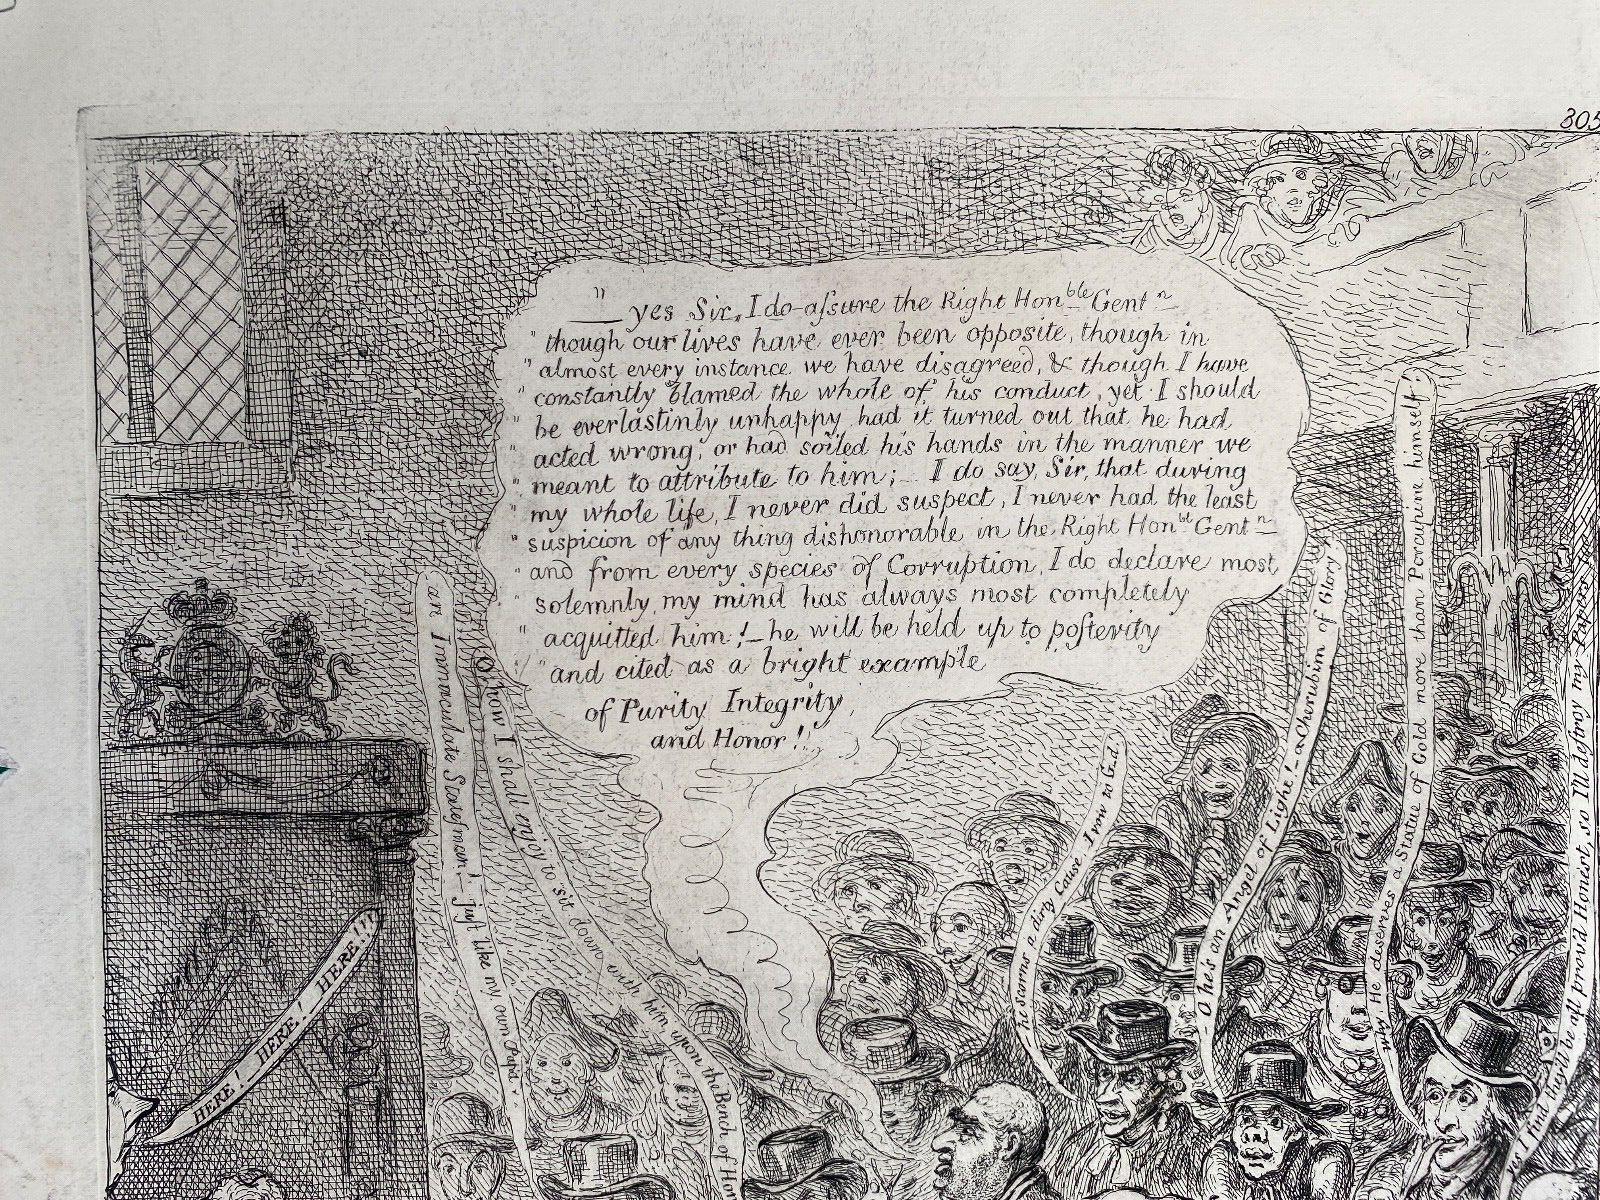 305
" — yes Sir, I do aſsure the Right Honble Gentn
" though our lives have ever been opposite, though in
" almost every instance we have disagreed, & though I have
" constantly blamed the whole of his conduct, yet I should
" be everlastinly unhappy had it turned out that he had
" acted wrong, or had soiled his hands in the manner we
" meant to attribute to him; – I do say, Sir, that during
" my whole life, I never did suspect, I never had the least
" suspicion of any thing dishonorable in the Right Honble Gentn
" and from every species of Corruption, I do declare most
" solemnly, my mind has always most completely
" acquitted him! – he will be held up to poſterity
" and cited as a bright example
of Purity Integrity
and Honor!!
HERE! HERE! HERE!!!
an Immaculate Stateſman! juſt like my own
O, how I shall enjoy to sit down with him upon the Bench of Hon
his turns a dirty Cause I vow to G-d
O he's an Angel of Light! – a Cherubim of Glory
why He deserves a Statue of Gold more than Porcupine himself
yes I find they'll be all prov'd Honest, so Ill deſtroy my Papers